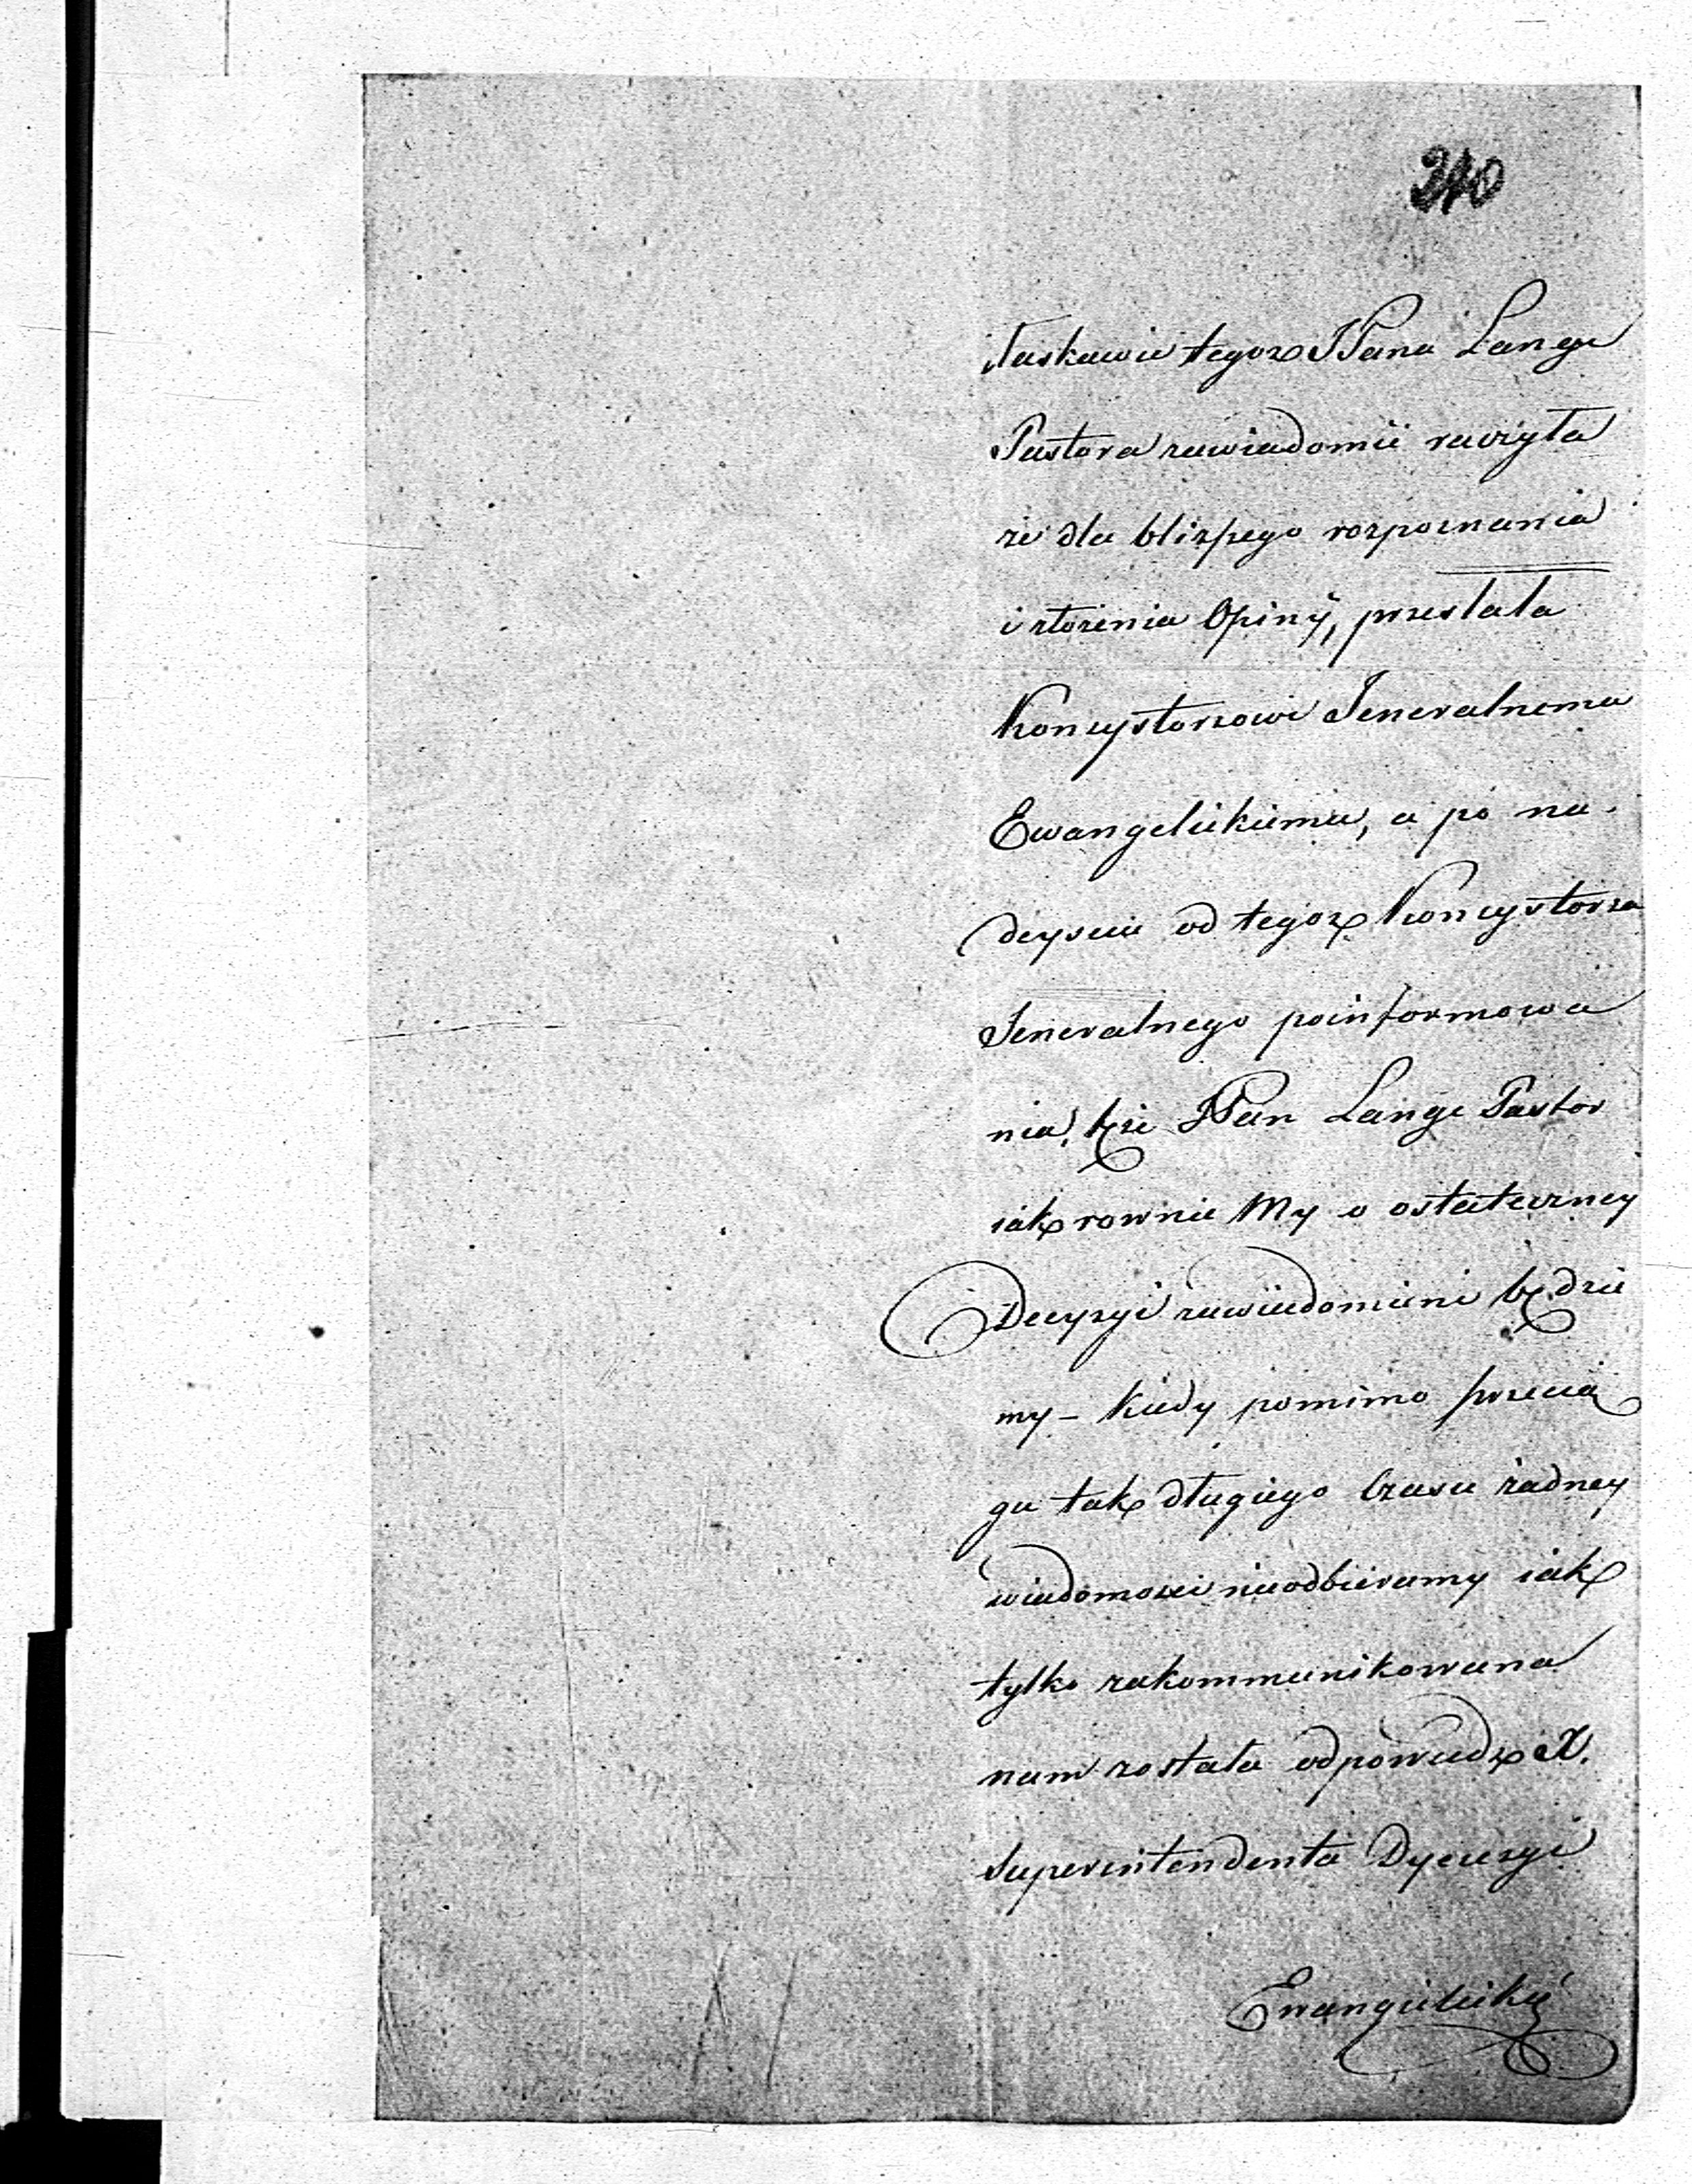 240
Łaskawie tegoż JPana Lange
Pastora zawiadomić raczyła
że dla bliższego rozpoznania
i złożenia Opinij, przesłała
Konsystorzowi Jeneralnemu
Ewangelickiemu, a po na-
deysciu od tegoż Konsystorza
Jeneralnego poinformowa
nia, tże JPan Lange Pastor
iak rownie My o ostateczney
Decyzyi zawiadomieni będzie
my – kiedy pomimo przecią
gu tak długiego Czasu żadney
wiadomosci nieodbieramy iak
tylko zakommunikowana
nam została odpowiedź X.
Superintendenta Dyecezyi
Ewangielickiéy